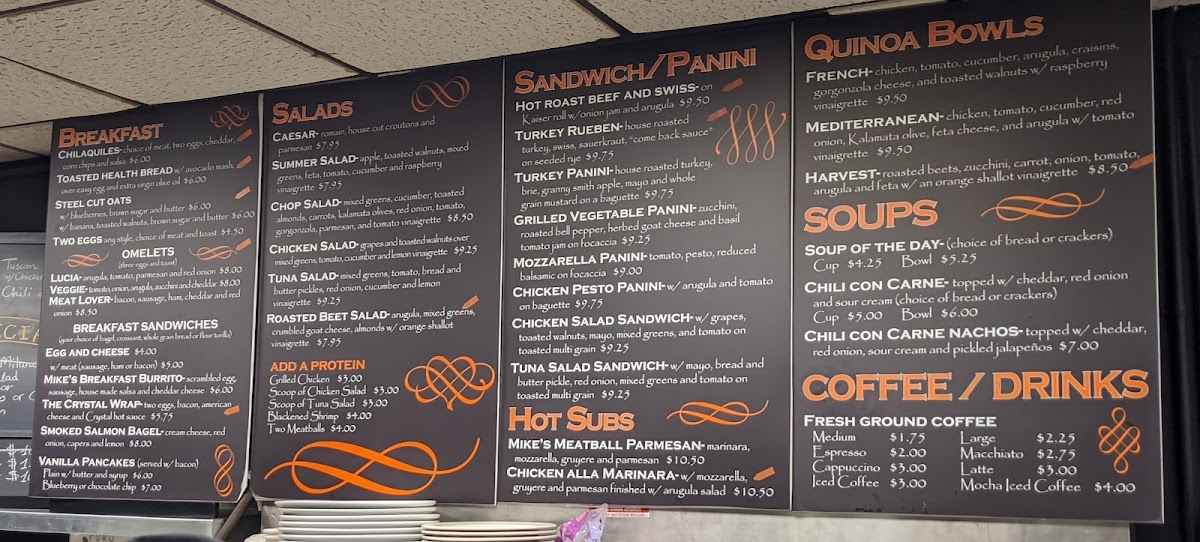 BREAKFAST
CHILAQUILES- choice of meat, two eggs, cheddar,
corn chips and salsa $6.00
TOASTED HEALTH BREAD w/ avocado mash,
over easy egg and extra virgin olive oil $6.00
STEEL CUT OATS
w/ blueberries, brown sugar and butter $6.00
w/ banana, toasted walnuts, brown sugar and butter $6.00
TWO EGGS any style, choice of meat and toast $4.50
OMELETS
(three eggs and toast)
LUCIA- arugula, tomato, parmesan and red onion $8.00
VEGGIE- tomato, onion, arugula, zucchini and cheddar $8.00
MEAT LOVER- bacon, sausage, ham, cheddar and red
onion $8.50
BREAKFAST SANDWICHES
(your choice of bagel, croissant, whole grain bread or flour tortilla)
EGG AND CHEESE $4.00
w/ meat (sausage, ham or bacon) $5.00
MIKE'S BREAKFAST BURRITO- scrambled egg,
sausage, house made salsa and cheddar cheese $6.00
THE CRYSTAL WRAP- two eggs, bacon, american
cheese and Crystal hot sauce $5.75
SMOKED SALMON BAGEL- cream cheese, red
onion, capers and lemon $8.00
VANILLA PANCAKES (served w/ bacon)
Plain w/ butter and syrup $6.00
Blueberry or chocolate chip $7.00
SALADS
CAESAR- romain, house cut croutons and
parmesan $7.95
SUMMER SALAD- apple, toasted walnuts, mixed
greens, feta, tomato, cucumber and raspberry
vinaigrette $7.95
CHOP SALAD- mixed greens, cucumber, toasted
almonds, carrots, kalamata olives, red onion, tomato,
gorgonzola, parmesan, and tomato vinaigrette $8.50
CHICKEN SALAD- grapes and toasted walnuts over
mixed greens, tomato, cucumber and lemon vinaigrette $9.25
TUNA SALAD- mixed greens, tomato, bread and
butter pickles, red onion, cucumber and lemon
vinaigrette $9.25
ROASTED BEET SALAD- arugula, mixed greens,
crumbled goat cheese, almonds w/ orange shallot
vinaigrette $7.95
ADD A PROTEIN
Grilled Chicken $3.00
Scoop of Chicken Salad $3.00
Scoop of Tuna Salad $3.00
Blackened Shrimp $4.00
Two Meatballs $4.00
SANDWICH/PANINI
HOT ROAST BEEF AND SWISS- on
Kaiser roll w/onion jam and arugula $9.50
TURKEY RUEBEN- house roasted
turkey, swiss, sauerkraut, "come back sauce"
on seeded rye $9.75
TURKEY PANINI- house roasted turkey,
brie, granny smith apple, mayo and whole
grain mustard on a baguette $9.75
GRILLED VEGETABLE PANINI- zucchini,
roasted bell pepper, herbed goat cheese and basil
tomato jam on focaccia $9.25
MOZZARELLA PANINI- tomato, pesto, reduced
balsamic on focaccia $9.00
CHICKEN PESTO PANINI- w/ arugula and tomato
on baguette $9.75
CHICKEN SALAD SANDWICH- w/ grapes,
toasted walnuts, mayo, mixed greens, and tomato on
toasted multi grain $9.25
TUNA SALAD SANDWICH- w/ mayo, bread and
butter pickle, red onion, mixed greens and tomato on
toasted multi grain $9.25
HOT SUBS
MIKE'S MEATBALL PARMESAN- marinara,
mozzarella, gruyere and parmesan $10.50
CHICKEN ALLA MARINARA- w/ mozzarella,
gruyere and parmesan finished w/ arugula salad $10.50
QUINOA BOWLS
FRENCH- chicken, tomato, cucumber, arugula, craisins,
gorgonzola cheese, and toasted walnuts w/ raspberry
vinaigrette $9.50
MEDITERRANEAN- chicken, tomato, cucumber, red
onion, Kalamata olive, feta cheese, and arugula w/ tomato
vinaigrette $9.50
HARVEST- roasted beets, zucchini, carrot, onion, tomato,
arugula and feta w/ an orange shallot vinaigrette $8.50
SOUPS
SOUP OF THE DAY- (choice of bread or crackers)
Cup $4.25 Bowl $5.25
CHILI CON CARNE- topped w/ cheddar, red onion
and sour cream (choice of bread or crackers)
Cup $5.00 Bowl $6.00
CHILI CON CARNE NACHOS- topped w/ cheddar,
red onion, sour cream and pickled jalapeños $7.00
COFFEE / DRINKS
FRESH GROUND COFFEE
Medium $1.75 Large $2.25
Espresso $2.00 Macchiato $2.75
Cappuccino $3.00 Latte $3.00
Iced Coffee $3.00 Mocha Iced Coffee $4.00
Tuscan
w/ Chicke
Chili